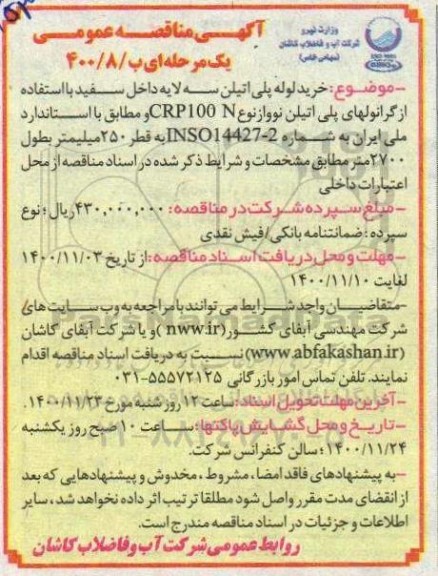 وزارت نیرو
شرکت آب و فاضلاب کاشان
(سهامی خاص)
آگهی مناقصه عمومی
یک مرحله‌ای ب/۴۰۰/۸
-موضوع: خرید لوله پلی اتیلن سه لایه داخل سفید با استفاده
از گرانولهای پلی اتیلن نو و از نوع CRP100 N و مطابق با استاندارد
ملی ایران به شماره INSO14427-2 به قطر ۲۵۰ میلیمتر بطول
۲۷۰۰ متر مطابق مشخصات و شرایط ذکر شده در اسناد مناقصه از محل
اعتبارات داخلی
-مبلغ سپرده شرکت در مناقصه: ۴۳۰,۰۰۰,۰۰۰ ریال؛ نوع
سپرده: ضمانتنامه بانکی/فیش نقدی
-مهلت و محل دریافت اسناد مناقصه: از تاریخ ۱۴۰۰/۱۱/۰۳
لغایت ۱۴۰۰/۱۱/۱۰
-متقاضیان واجد شرایط می توانند با مراجعه به وب سایت های
شرکت مهندسی آبفای کشور (nww.ir) و یا شرکت آبفای کاشان
(www.abfakashan.ir) نسبت به دریافت اسناد مناقصه اقدام
نمایند. تلفن تماس امور بازرگانی ۵۵۵۷۲۱۲۵-۰۳۱
-آخرین مهلت تحویل اسناد: ساعت ۱۲ روز شنبه مورخ ۱۴۰۰/۱۱/۲۳.
-تاریخ و محل گشایش پاکتها: ساعت ۱۰ صبح روز یکشنبه
۱۴۰۰/۱۱/۲۴؛ سالن کنفرانس شرکت.
-به پیشنهادهای فاقد امضا، مشروط، مخدوش و پیشنهادهایی که بعد
از انقضای مدت مقرر واصل شود مطلقا ترتیب اثر داده نخواهد شد، سایر
اطلاعات و جزئیات در اسناد مناقصه مندرج است.
روابط عمومی شرکت آب و فاضلاب کاشان